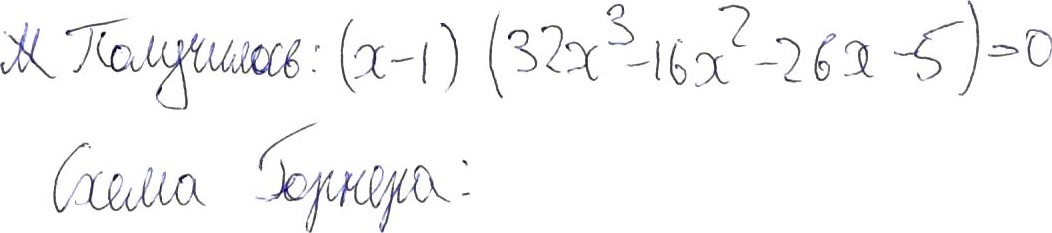 И Получилось: (x-1) (32x³-16x²-26x-5)=0
Схема Горнера: